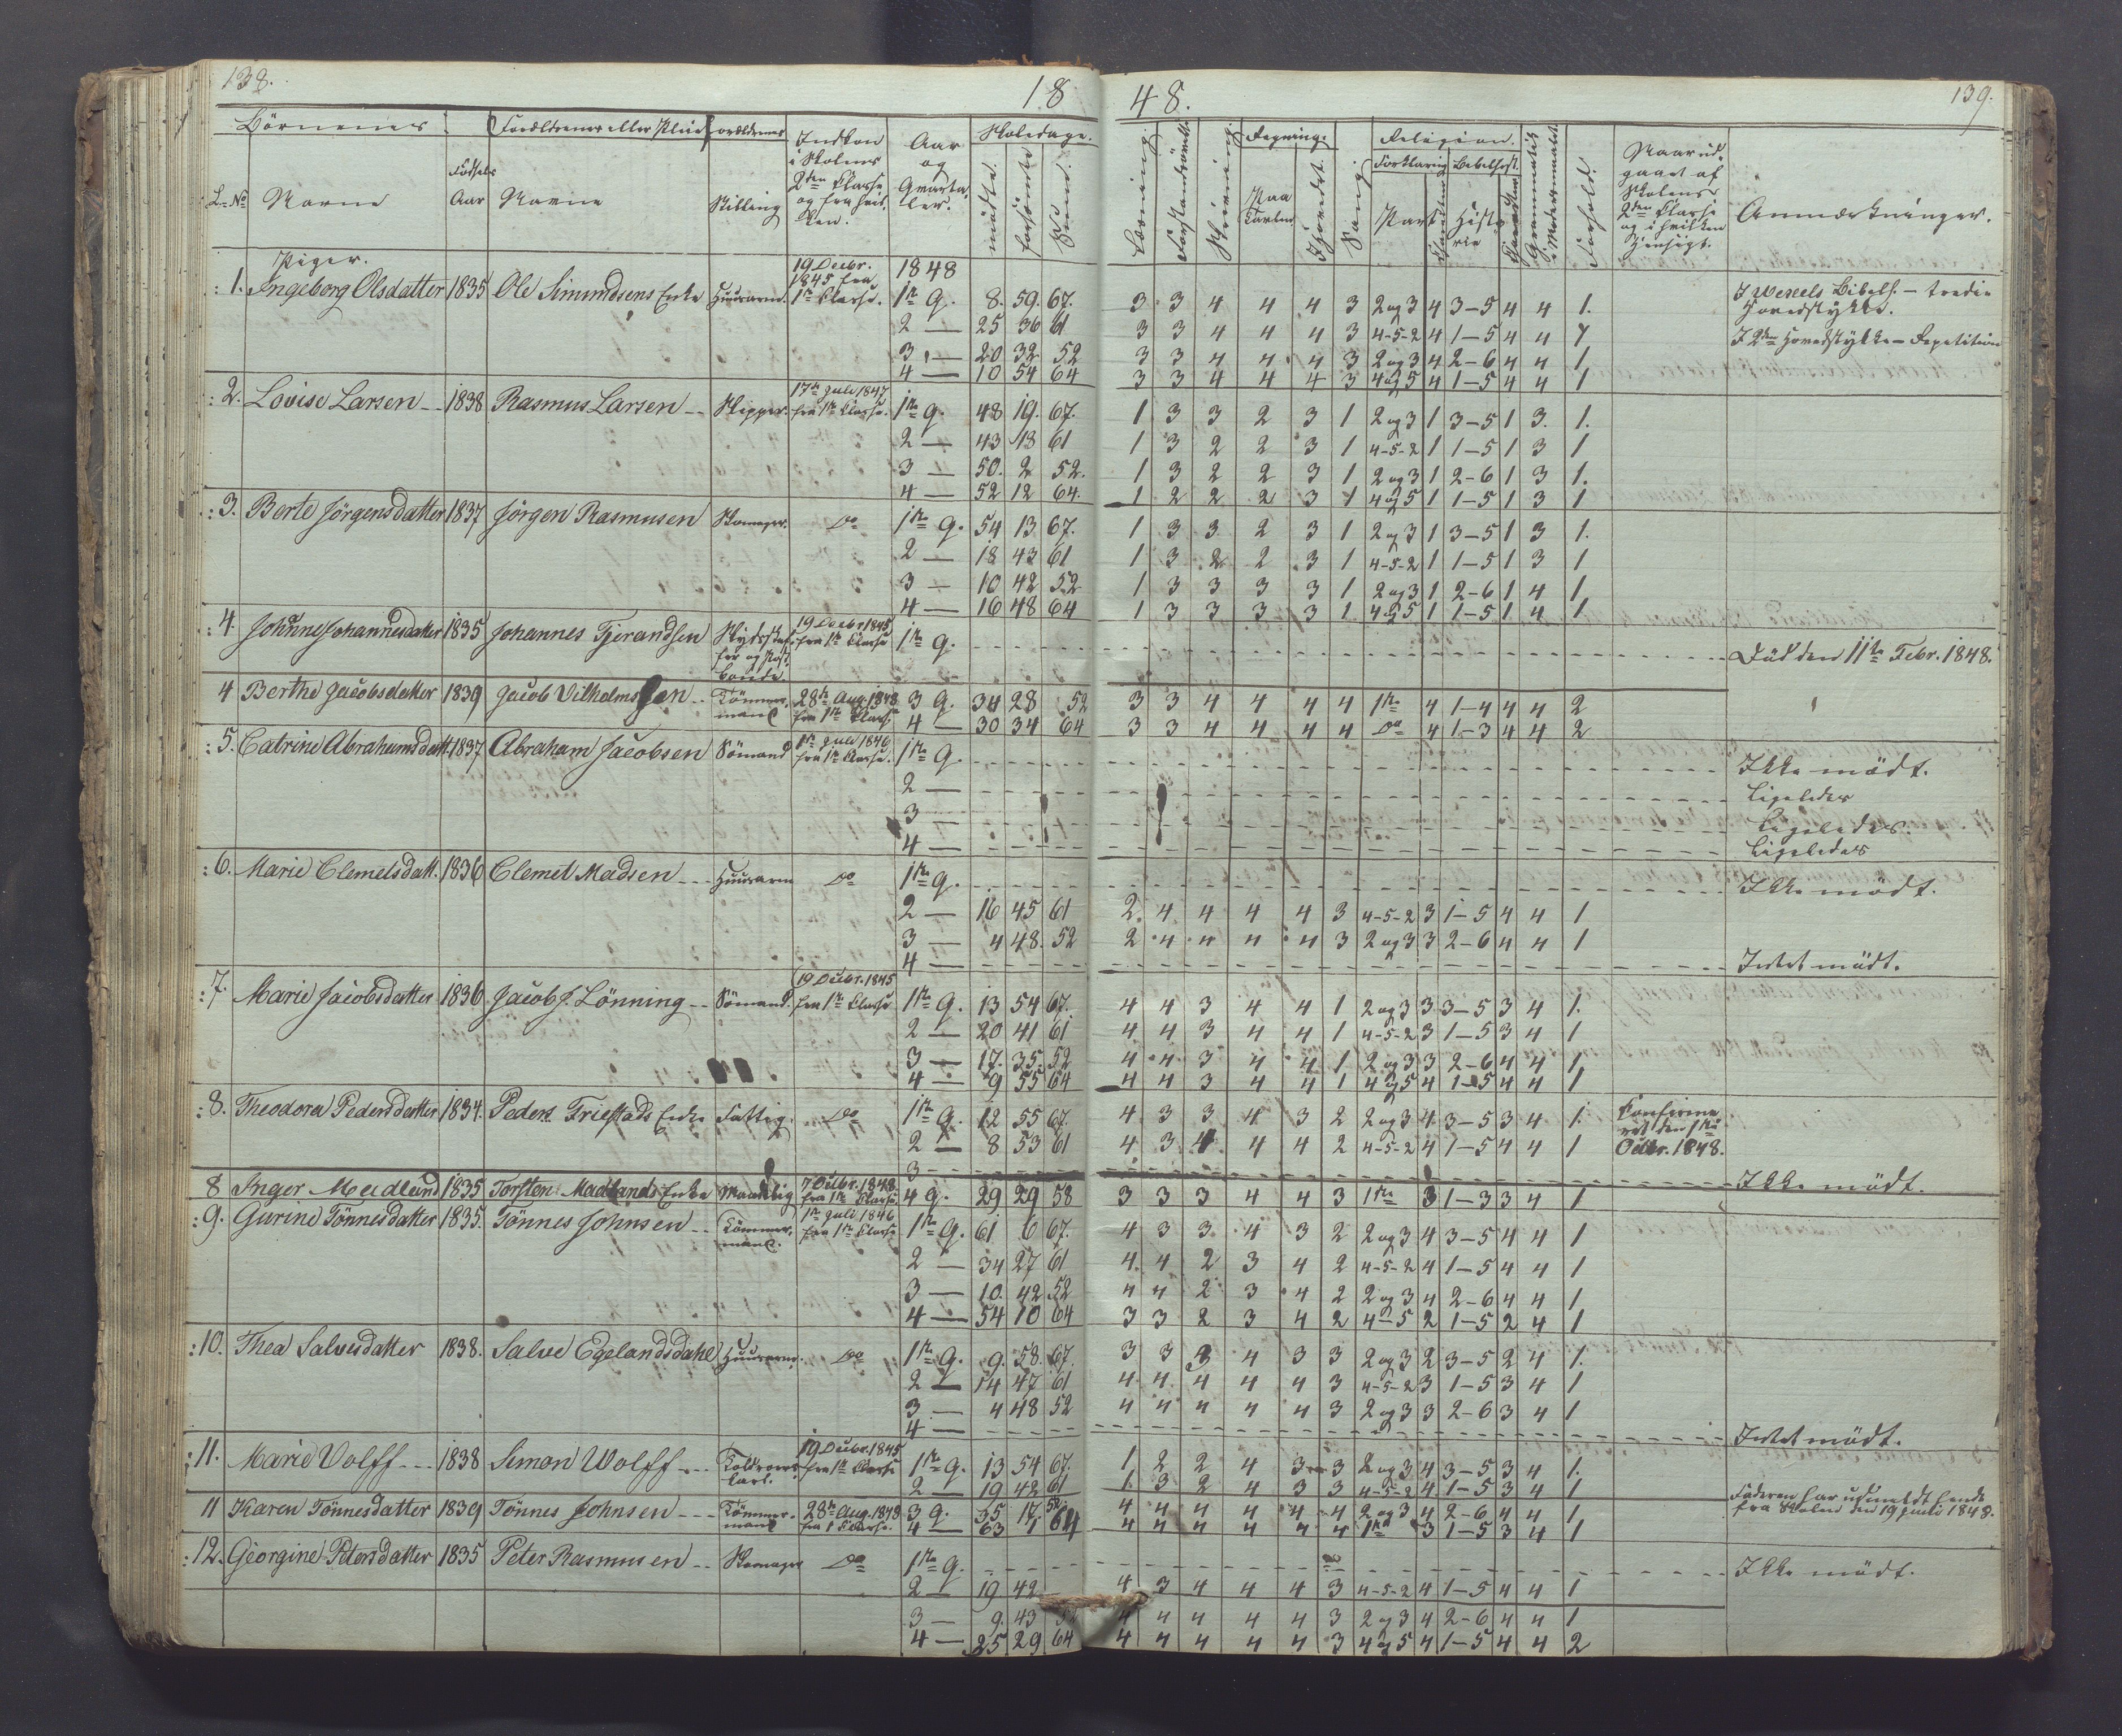 138.
18
48.
139.
Börnenes
Forældrenes eller Pleieforældrenes
Indkom i Skolens 2den Classe og fra hvilken.
Aar og Qvartaler.
Skoledage.
Læsning.
Skrivning.
Regning.
Sang.
Religion.
Forhold.
Naar udgaaet af Skolens 2den Classe og i hvilken Hensigt.
Anmærkninger.
L. No
Navne
Födsels Aar
Navne
Stilling
mödte.
forsömte
Sum.
Paa Tavlen
Hovedet.
Forklaring
Bibelhist.
Part
Historie
Piger.
1. Ingeborg Olsdatter 1835 Ole Simundsens Enke Huusarm. 19 Decbr. 1845 fra 1ste Classe. 1848 1ste Q. 8. 59. 67. 3 3 4 4 4 3 2 og 3 4 3-5 4 4 1. I Wexels Bibelh. - tredie Hovedstykke.
2 — 25 36 61 3 3 4 4 4 3 4-5-2 4 1-5 4 4 1 I 2det Hovedstykke - Repetition
3 — 20 32 52 3 3 4 4 4 3 2 og 3 4 2-6 4 4 1
4 — 10 54 64 3 3 4 4 4 3 4 og 5 4 1-5 4 4 1
2. Lovise Larsen 1838 Rasmus Larsen Skipper. 17de Juli 1847 fra 1ste Classe. 1ste Q. 48 19. 67. 1 3 3 2 3 1 2 og 3 1 3-5 1 3. 1.
2 — 43 18 61 1 3 2 2 3 1 4-5-2 1 1-5 1 3 1
3 — 50. 2 52. 1 3 2 2 3 1 2 og 3 1 2-6 1 3 1.
4 — 52 12 64. 1 2 2 2 3 1 4 og 5 1 1-5 1 3 1
3. Berte Jörgensdatter 1837 Jörgen Rasmusen Skomager. Do 1ste Q. 54 13 67. 1 3 3 2 3 1 2 og 3 1 3-5 1 3 1.
2 — 18 43 61 1 3 2 2 3 1 4-5-2 1 1-5 1 3 1
3 — 10 42 52 1 3 3 3 3 1 2 og 3 1 2-6 1 4 1
4 — 16 48 64 1 3 3 3 3 1 4 og 5 1 1-5 1 4 1.
4. Johanne Johannesdatter 1835 Johannes Tjerandsen 19 Decbr 1845 fra 1ste Classe 1ste Q. Död den 11te Febr. 1848.
4 Berthe Jacobsdatter 1839 Jacob Vilhelmsen Tömmermand 28de Aug. 1848 fra 1ste Classe 3 Q. 34 28 52 3 3 4 4 4 4 1ste 4 1-4 4 4 2
4 — 30 34 64 3 3 4 4 4 4 Do 4 1-3 4 4 2
5. Catrine Abrahamsdatt. 1837 Abraham Jacobsen Sömand 1ste Juli 1846 fra 1ste Classe. 1ste Q. Ikke mödt.
2 — Ligeledes
3 — Ligeledes.
4 — Ligeledes
6. Marie Clemetsdatt. 1836 Clemet Madsen Huusarm Do 1ste Q. Ikke mödt.
2 — 16 45 61 2. 4 4 4 4 3 4-5-2 3 1-5 4 4 1
3 — 4 48. 52 2 4 4 4 4 3 2 og 3 3 2-6 4 4 1
4 — Intet mödt.
7. Marie Jacobsdatter 1836 Jacob J. Lönning Sömand. 19 Decbr. 1845 fra 1ste Classe 1ste Q. 13 54 67. 4 4 3 4 4 1 2 og 3 3 3-5 3 4 1.
2 — 20 41 61 4 4 3 4 4 1 4-5-2 3 1-5 3 4 1
3 — 17. 35. 52 4 4 3 4 4 1 2 og 3 3 2-6 4 4 1
4 — 9 55 64 4 4 3 4 4 1 4 og 5 4 1-5 4 4 1
8. Theodora Pedersdatter 1834. Peders Friestads Enke Fattig. Do 1ste Q. 12 55 67. 4 3 3 4 3 2 2 og 3 4 3-5 3 4 1. Confirmeret den 1ste Octbr. 1848.
2 — 8 53 61 4 3 4 4 4 2 4-5-2 4 1-5 4 4 1
3 Ikke mödt.
8 Inger Madland 1835 Torsten Madlands Enke 7 Octbr. 1848 fra 1ste Classe 4 Q. 29 29 58 3 3 3 4 4 3 1ste 3 1-3 3 4 1
9. Gurine Tönnesdatter 1835. Tönnes Johnsen Tömmermand. 1ste Juli 1846 fra 1ste Classe 1ste Q. 61 6 67. 4 3 3 4 3 2 2 og 3 4 3-5 4 4 1
2 — 34 27 61 4. 4 2 3 4 2 4-5-2 4 1-5 4 4 1
3 — 10. 42 52 4 4 2 3 4 2 2 og 3 4 2-6 4 4 1
4 — 54 10 64 3 3 2 3 4 2 4-5 2 1-5 2 4 1
10. Thea Salvesdatter 1838. Salve Egelandsdahl Huusarm. Do 1ste Q. 9. 58. 67. 3 3 3 4 3 3 2 og 3 2 3-5 2 4 1.
2 — 14 47 61 4 4 4 4 4 3 4-5-2 3 1-5 3 4 1
3 — 4 48 52 4 4 4 4 4 3 2 og 3 3 2-6 3 4 1
4 — Intet mödt.
11. Marie Volff 1838 Simon Wolff 19 Decbr. 1845 fra 1ste Classe 1ste Q. 13 54 67. 1. 2 2 4 3 3 2 og 3 4 3-5 3 4 1.
2 — 19 42 61 1. 3 2 4 3 3 4-5-2 4 1-5 3 4 1 Faderen har udmeldt hende fra Skolen den 19 Juli 1848.
11 Karen Tönnesdatter 1839 Tönnes Johnsen Tömmermand 28de Aug. 1848 fra 1 Classe. 3 Q. 35 17. 52 4 4 4 4 4 4 2 og 3 4 2-6 4 4 1
4 — 63 1 64 4 4 4 4 4 4 1ste 3 1-5 3 4 1
12. Georgine Petersdatter 1835 Peter Rasmusen Skomager Do 1ste Q. Ikke mödt.
2 — 19 42 4 3 4 4 4 3 4-5-2 4 1-5 4 4 1
3 — 9. 43 52 4 4 4 4 4 3 2 og 3 4 2-6 4 4 1
4 — 25 29 64 4 4 4 4 4 3 4 og 5 4 1-5 4 4 2